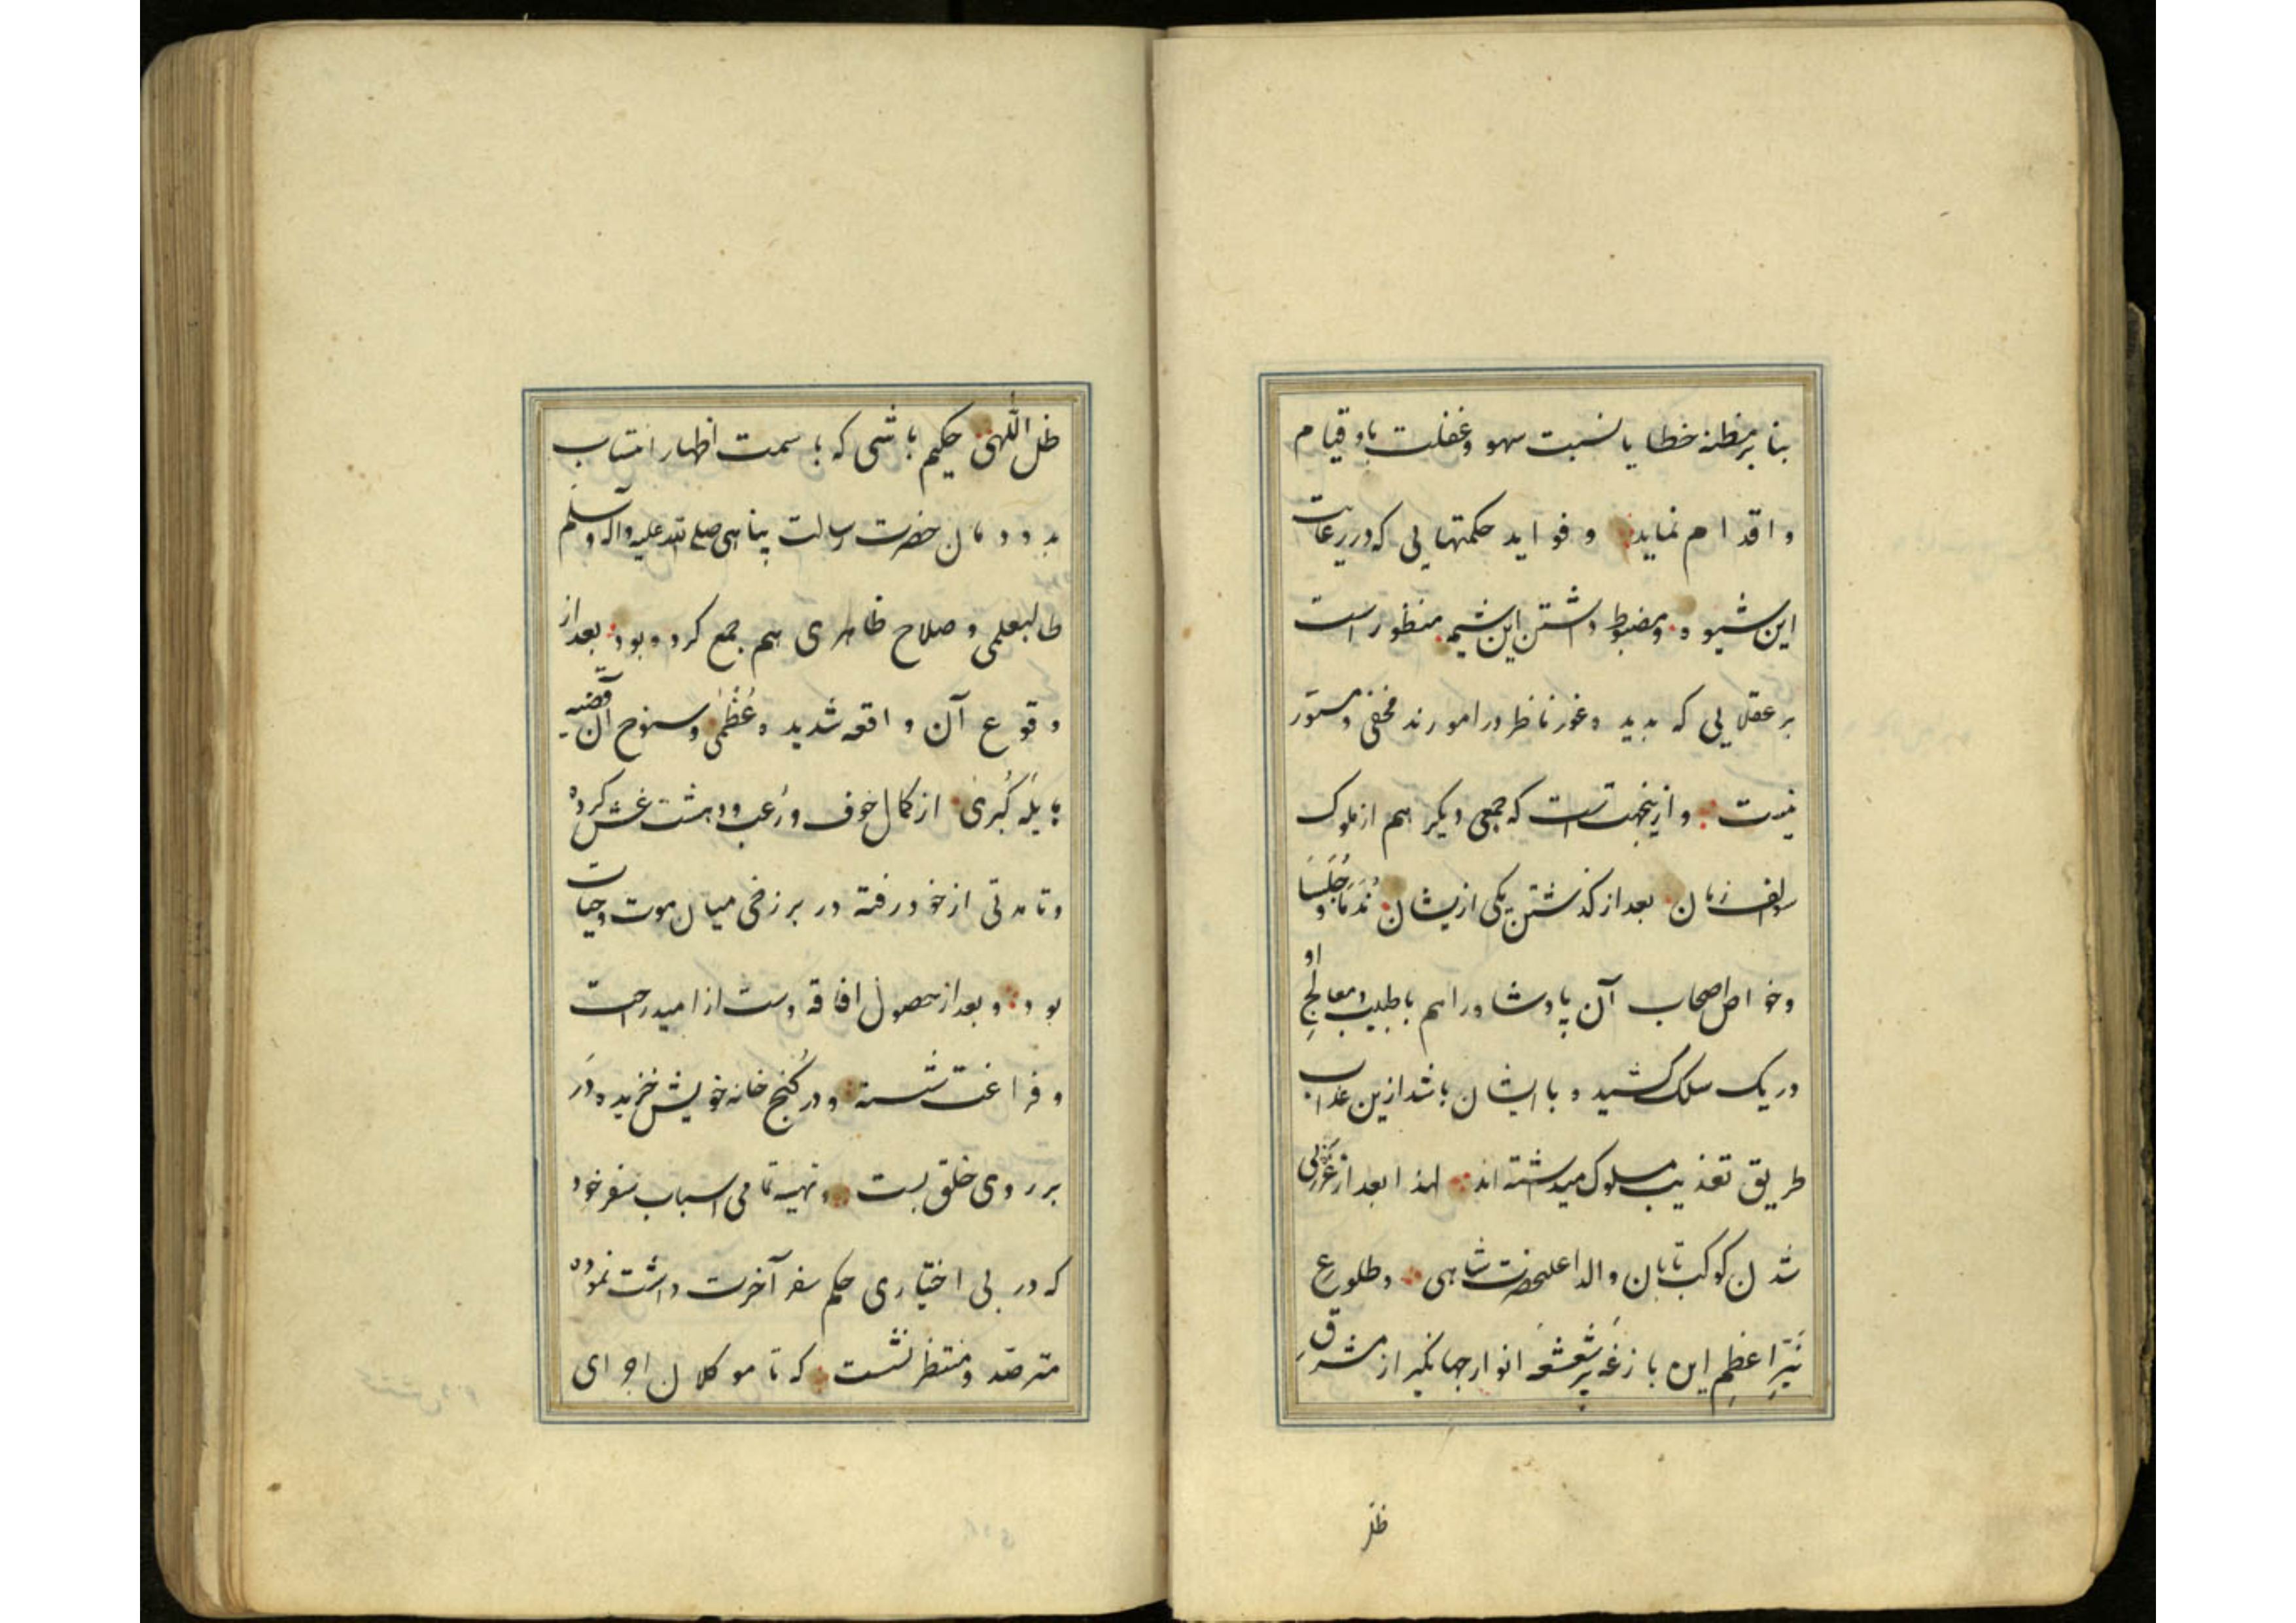 بنا بر مظنه خطا یا نسبت سهو و غفلت باو قیام
و اقدام نماید و فواید حکمتهایی که در رعایت
این شیوه و مضبوط داشتن این شیمه منظور است
بر عقلایی که بدیده غور ناظر در امورند مخفی و مستور
نیست و ازینجهتست که جمعی دیگر هم از ملوک
سوالف زمان بعد از گذشتن یکی ازیشان نُدَما و جُلَسا
و خواص اصحاب آن پادشاه را هم با طبیب و معالجِ او
در یک سلک کشیده با ایشان باشد ازین عذاب
طریق تعذیب مسلوک میداشته‌اند لهذا بعد از
شدن کوکب تابان والد اعلیحضرت شاهی و طلوعِ
نَیّرِ اعظمِ این بازغه پُر شعشعه انوار جهانگیر از مشرقِ
ظل
ظل اللّهی حکیم باشی که با سمت اظهار انتساب
بدودمان حضرت رسالت پناهی صلی الله علیه و آله و سلم
طالبعلمی و صلاح ظاهری هم جمع کرده بود بعد از
وقوع آن واقعه شدیده عُظْمٰی و سنوح آن قضیه
هایله کُبری از کمال خوف و رُعب و دهشت غش کرده
و تا مدتی از خود رفته در برزخی میان موت و حیات
بود و بعد از حصول افاقه دست از امید راحت
و فراغت شسته و در کُنج خانه خویش خزیده دَر
بر روی خلق بست و تهیه تمامی اسباب سفر خود
که در بی اختیاری حکم سفر آخرت داشت نموده
مترصّد و منتظر نشست که تا موکلان اجرای